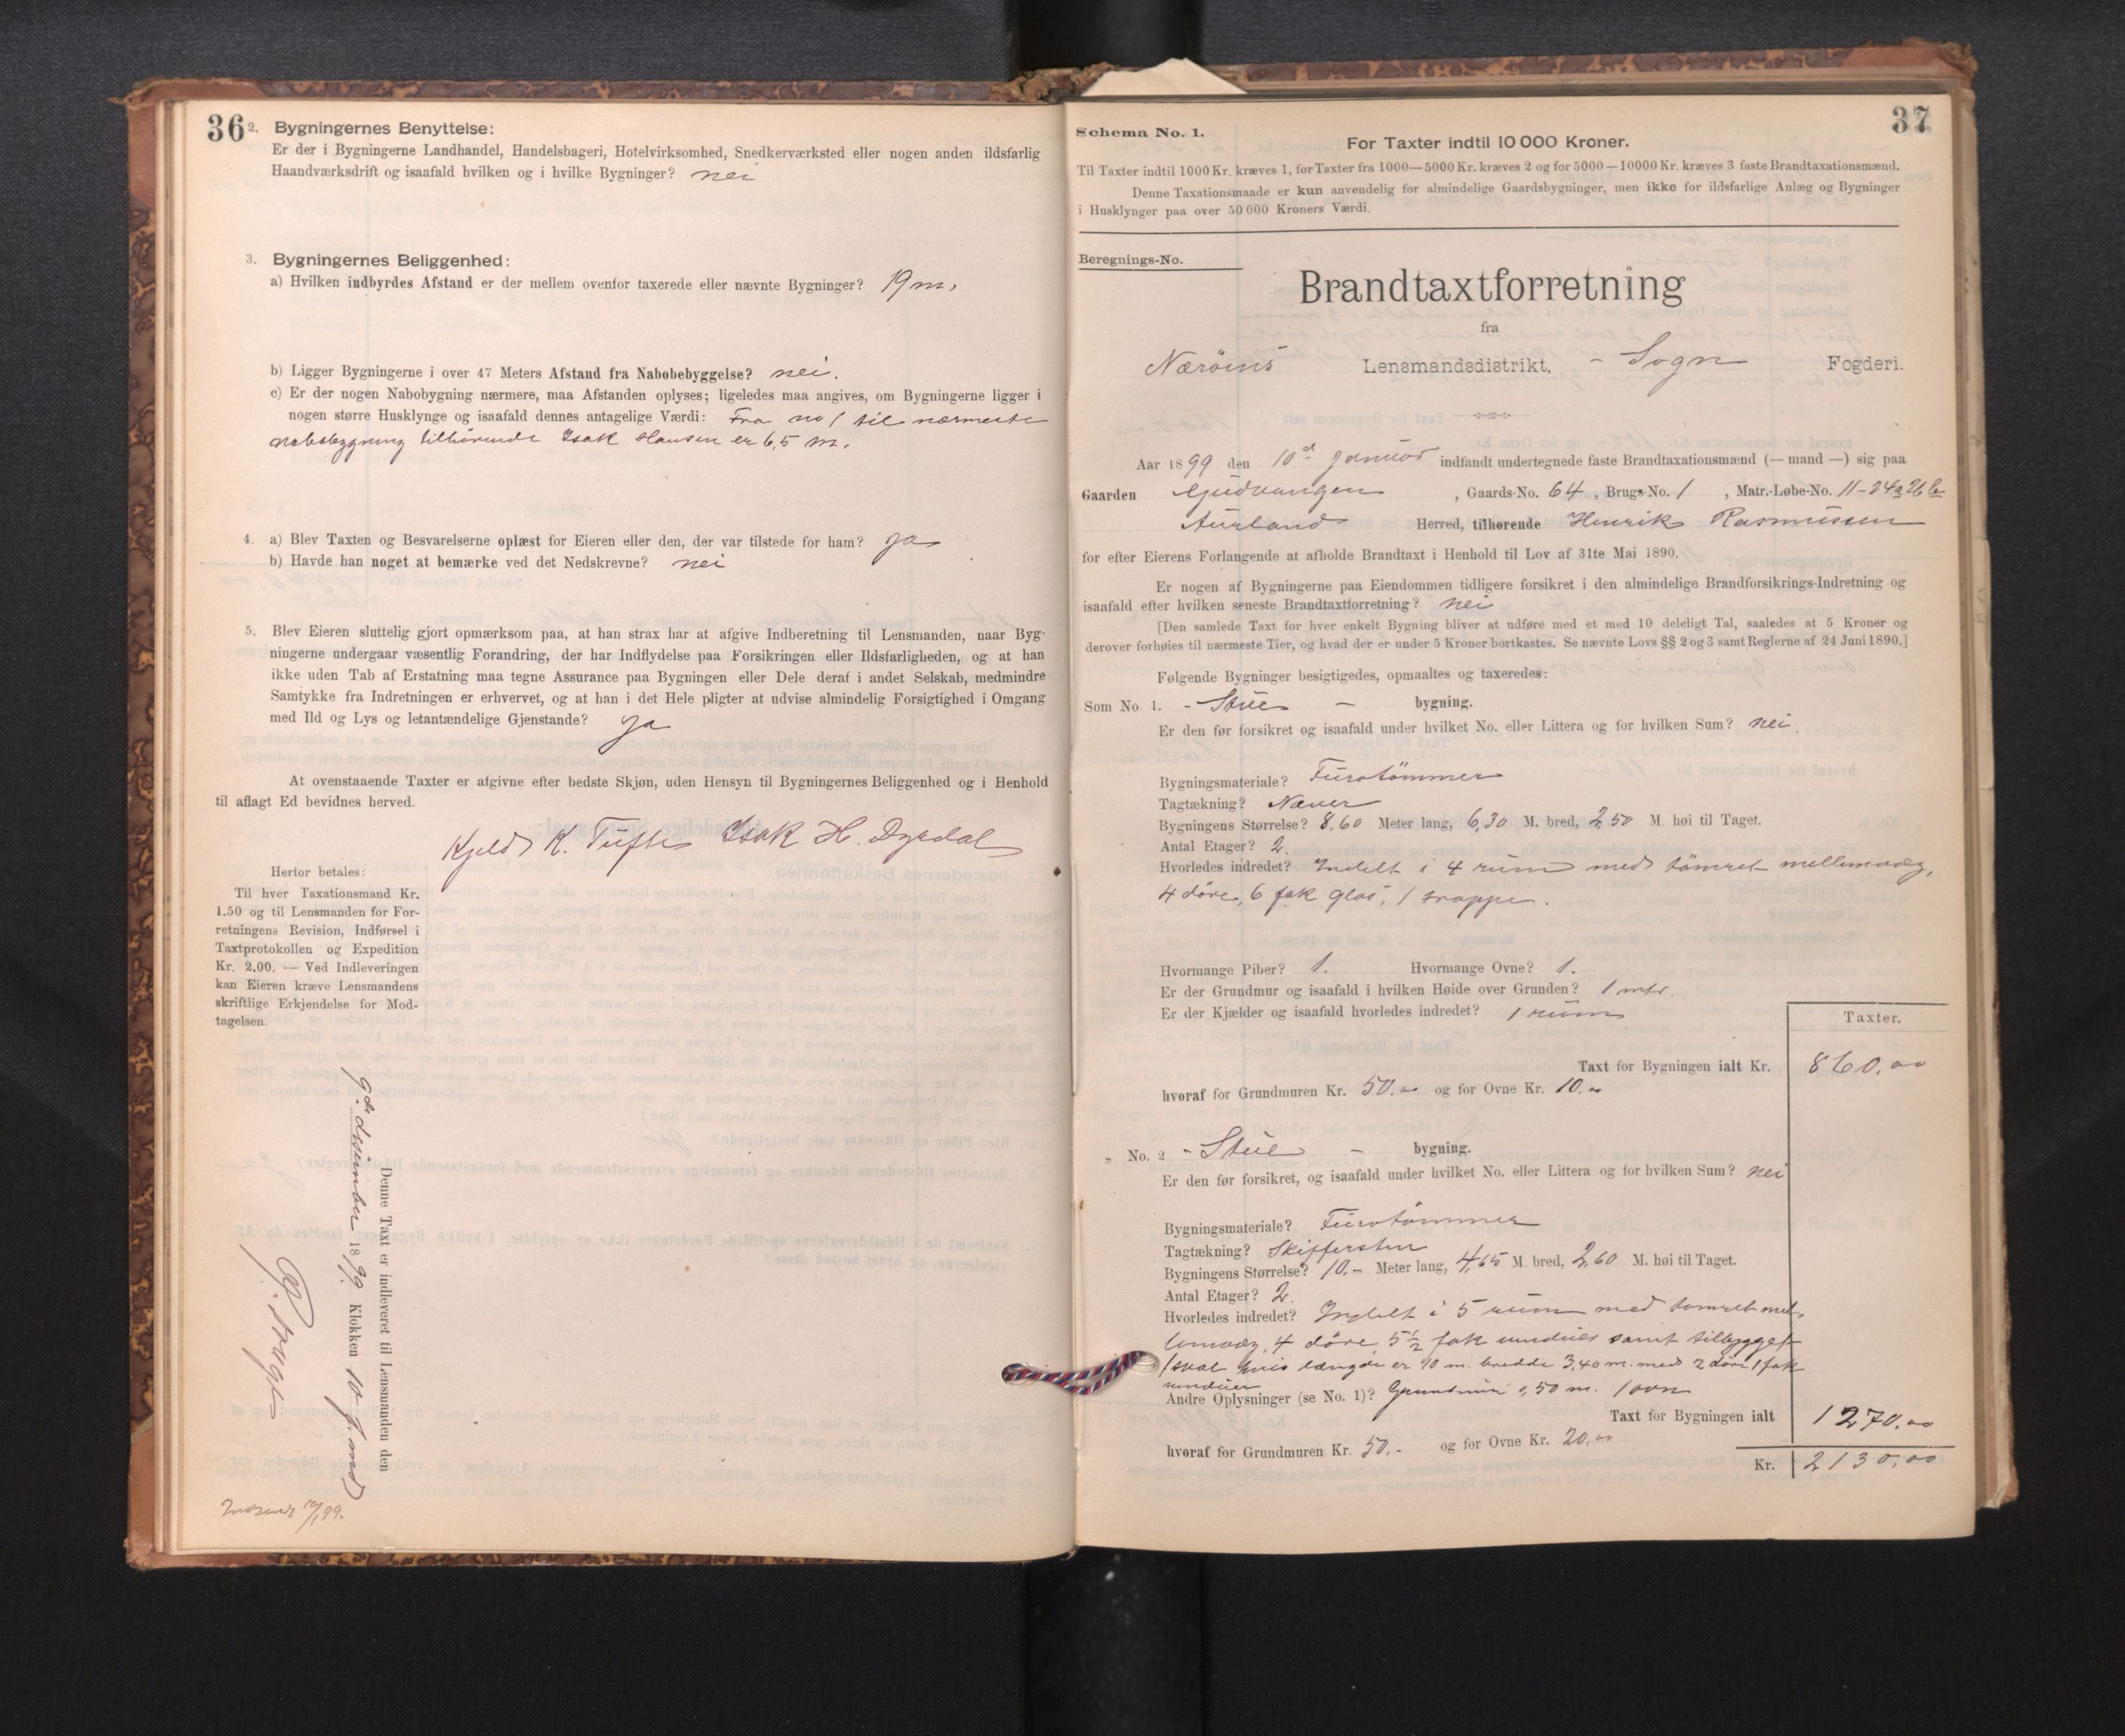 36
2. Bygningernes Benyttelse:
Er der i Bygningerne Landhandel, Handelsbageri, Hotelvirksomhed, Snedkerværksted eller nogen anden ildsfarlig
Haandværksdrift og isaafald hvilken og i hvilke Bygninger? nei
3. Bygningernes Beliggenhed:
a) Hvilken indbyrdes Afstand er der mellem ovenfor taxerede eller nævnte Bygninger? 19 m.
b) Ligger Bygningerne i over 47 Meters Afstand fra Nabobebyggelse? nei.
c) Er der nogen Nabobygning nærmere, maa Afstanden oplyses; ligeledes maa angives, om Bygningerne ligger i
nogen større Husklynge og isaafald dennes antagelige Værdi: Fra no 1 til nærmeste
nabobygning tilhørende Isak Hansen er 6,5 m.
4. a) Blev Taxten og Besvarelserne oplæst for Eieren eller den, der var tilstede for ham? ja
b) Havde han noget at bemærke ved det Nedskrevne? nei
5. Blev Eieren sluttelig gjort opmærksom paa, at han strax har at afgive Indberetning til Lensmanden, naar Byg-
ningerne undergaar væsentlig Forandring, der har Indflydelse paa Forsikringen eller Ildsfarligheden, og at han
ikke uden Tab af Erstatning maa tegne Assurance paa Bygningen eller Dele deraf i andet Selskab, medmindre
Samtykke fra Indretningen er erhvervet, og at han i det Hele pligter at udvise almindelig Forsigtighed i Omgang
med Ild og Lys og letantændelige Gjenstande? ja
At ovenstaaende Taxter er afgivne efter bedste Skjøn, uden Hensyn til Bygningernes Beliggenhed og i Henhold
til aflagt Ed bevidnes herved.
Kjeld K. Tufte Isak H. Dyrdal
Herfor betales:
Til hver Taxationsmand Kr.
1.50 og til Lensmanden for For-
retningens Revision, Indførsel i
Taxtprotokollen og Expedition
Kr. 2.00. — Ved Indleveringen
kan Eieren kræve Lensmandens
skriftlige Erkjendelse for Mod-
tagelsen.
Denne Taxt er indleveret til Lensmanden den
9de desember 1899. Klokken 10 f. md
Indsendt 10/1 99.
37
Schema No. 1.
For Taxter indtil 10 000 Kroner.
Til Taxter indtil 1000 Kr. kræves 1, for Taxter fra 1000—5000 Kr. kræves 2 og for 5000—10000 Kr. kræves 3 faste Brandtaxationsmænd.
Denne Taxationsmaade er kun anvendelig for almindelige Gaardsbygninger, men ikke for ildsfarlige Anlæg og Bygninger
i Husklynger paa over 50 000 Kroners Værdi.
Beregnings-No.
Brandtaxtforretning
fra
Nærøens Lensmandsdistrikt, - Sogn Fogderi.
Aar 1899 den 10de Januar indfandt undertegnede faste Brandtaxationsmænd (— mand —) sig paa
Gaarden Gudvangen , Gaards-No. 64 , Brugs-No. 1 , Matr.-Løbe-No. 11-24a 26b
Aurland Herred, tilhørende Henrik Rasmussen
for efter Eierens Forlangende at afholde Brandtaxt i Henhold til Lov af 31te Mai 1890.
Er nogen af Bygningerne paa Eiendommen tidligere forsikret i den almindelige Brandforsikrings-Indretning og
isaafald efter hvilken seneste Brandtaxtforretning? nei
[Den samlede Taxt for hver enkelt Bygning bliver at udføre med et med 10 deleligt Tal, saaledes at 5 Kroner og
derover forhøies til nærmeste Tier, og hvad der er under 5 Kroner bortkastes. Se nævnte Lovs §§ 2 og 3 samt Reglerne af 24 Juni 1890.]
Følgende Bygninger besigtigedes, opmaaltes og taxeredes:
Som No 1. - Stue - bygning.
Er den før forsikret og isaafald under hvilket No. eller Littera og for hvilken Sum? nei.
Bygningsmateriale? Furutømmer
Tagtækning? Næver
Bygningens Størrelse? 8,60 Meter lang, 6,30 M. bred, 2,50 M. høi til Taget.
Antal Etager? 2.
Hvorledes indredet? Indelt i 4 rum med tømret mellemvæg,
4 døre, 6 fak glas, 1 trappe.
Hvormange Piber? 1. Hvormange Ovne? 1.
Er der Grundmur og isaafald i hvilken Høide over Grunden? 1 mtr.
Er der Kjælder og isaafald hvorledes indredet? 1 rum
Taxter.
Taxt for Bygningen ialt Kr. 860.00
hvoraf for Grundmuren Kr. 50.00 og for Ovne Kr. 10.00
„ No. 2 - Stue - bygning.
Er den før forsikret, og isaafald under hvilket No. eller Littera og for hvilken Sum? nei
Bygningsmateriale? Furutømmer
Tagtækning? Skiffersten
Bygningens Størrelse? 10.- Meter lang, 4,65 M. bred, 2,60 M. høi til Taget.
Antal Etager? 2.
Hvorledes indredet? Indelt i 5 rum med tømret mel-
lemvæg, 4 døre, 5 1/2 fak vinduer samt tilbygget
1 sval hvis længde er 10 m. bredde 3,40 m. med 2 døre 1 fak
vinduer
Andre Oplysninger (se No. 1)? Grundmur 0,50 m. 1 ovn
Taxt for Bygningen ialt 1270.00
hvoraf for Grundmuren Kr. 50.- og for Ovne Kr. 20.00
Kr. 2130.00